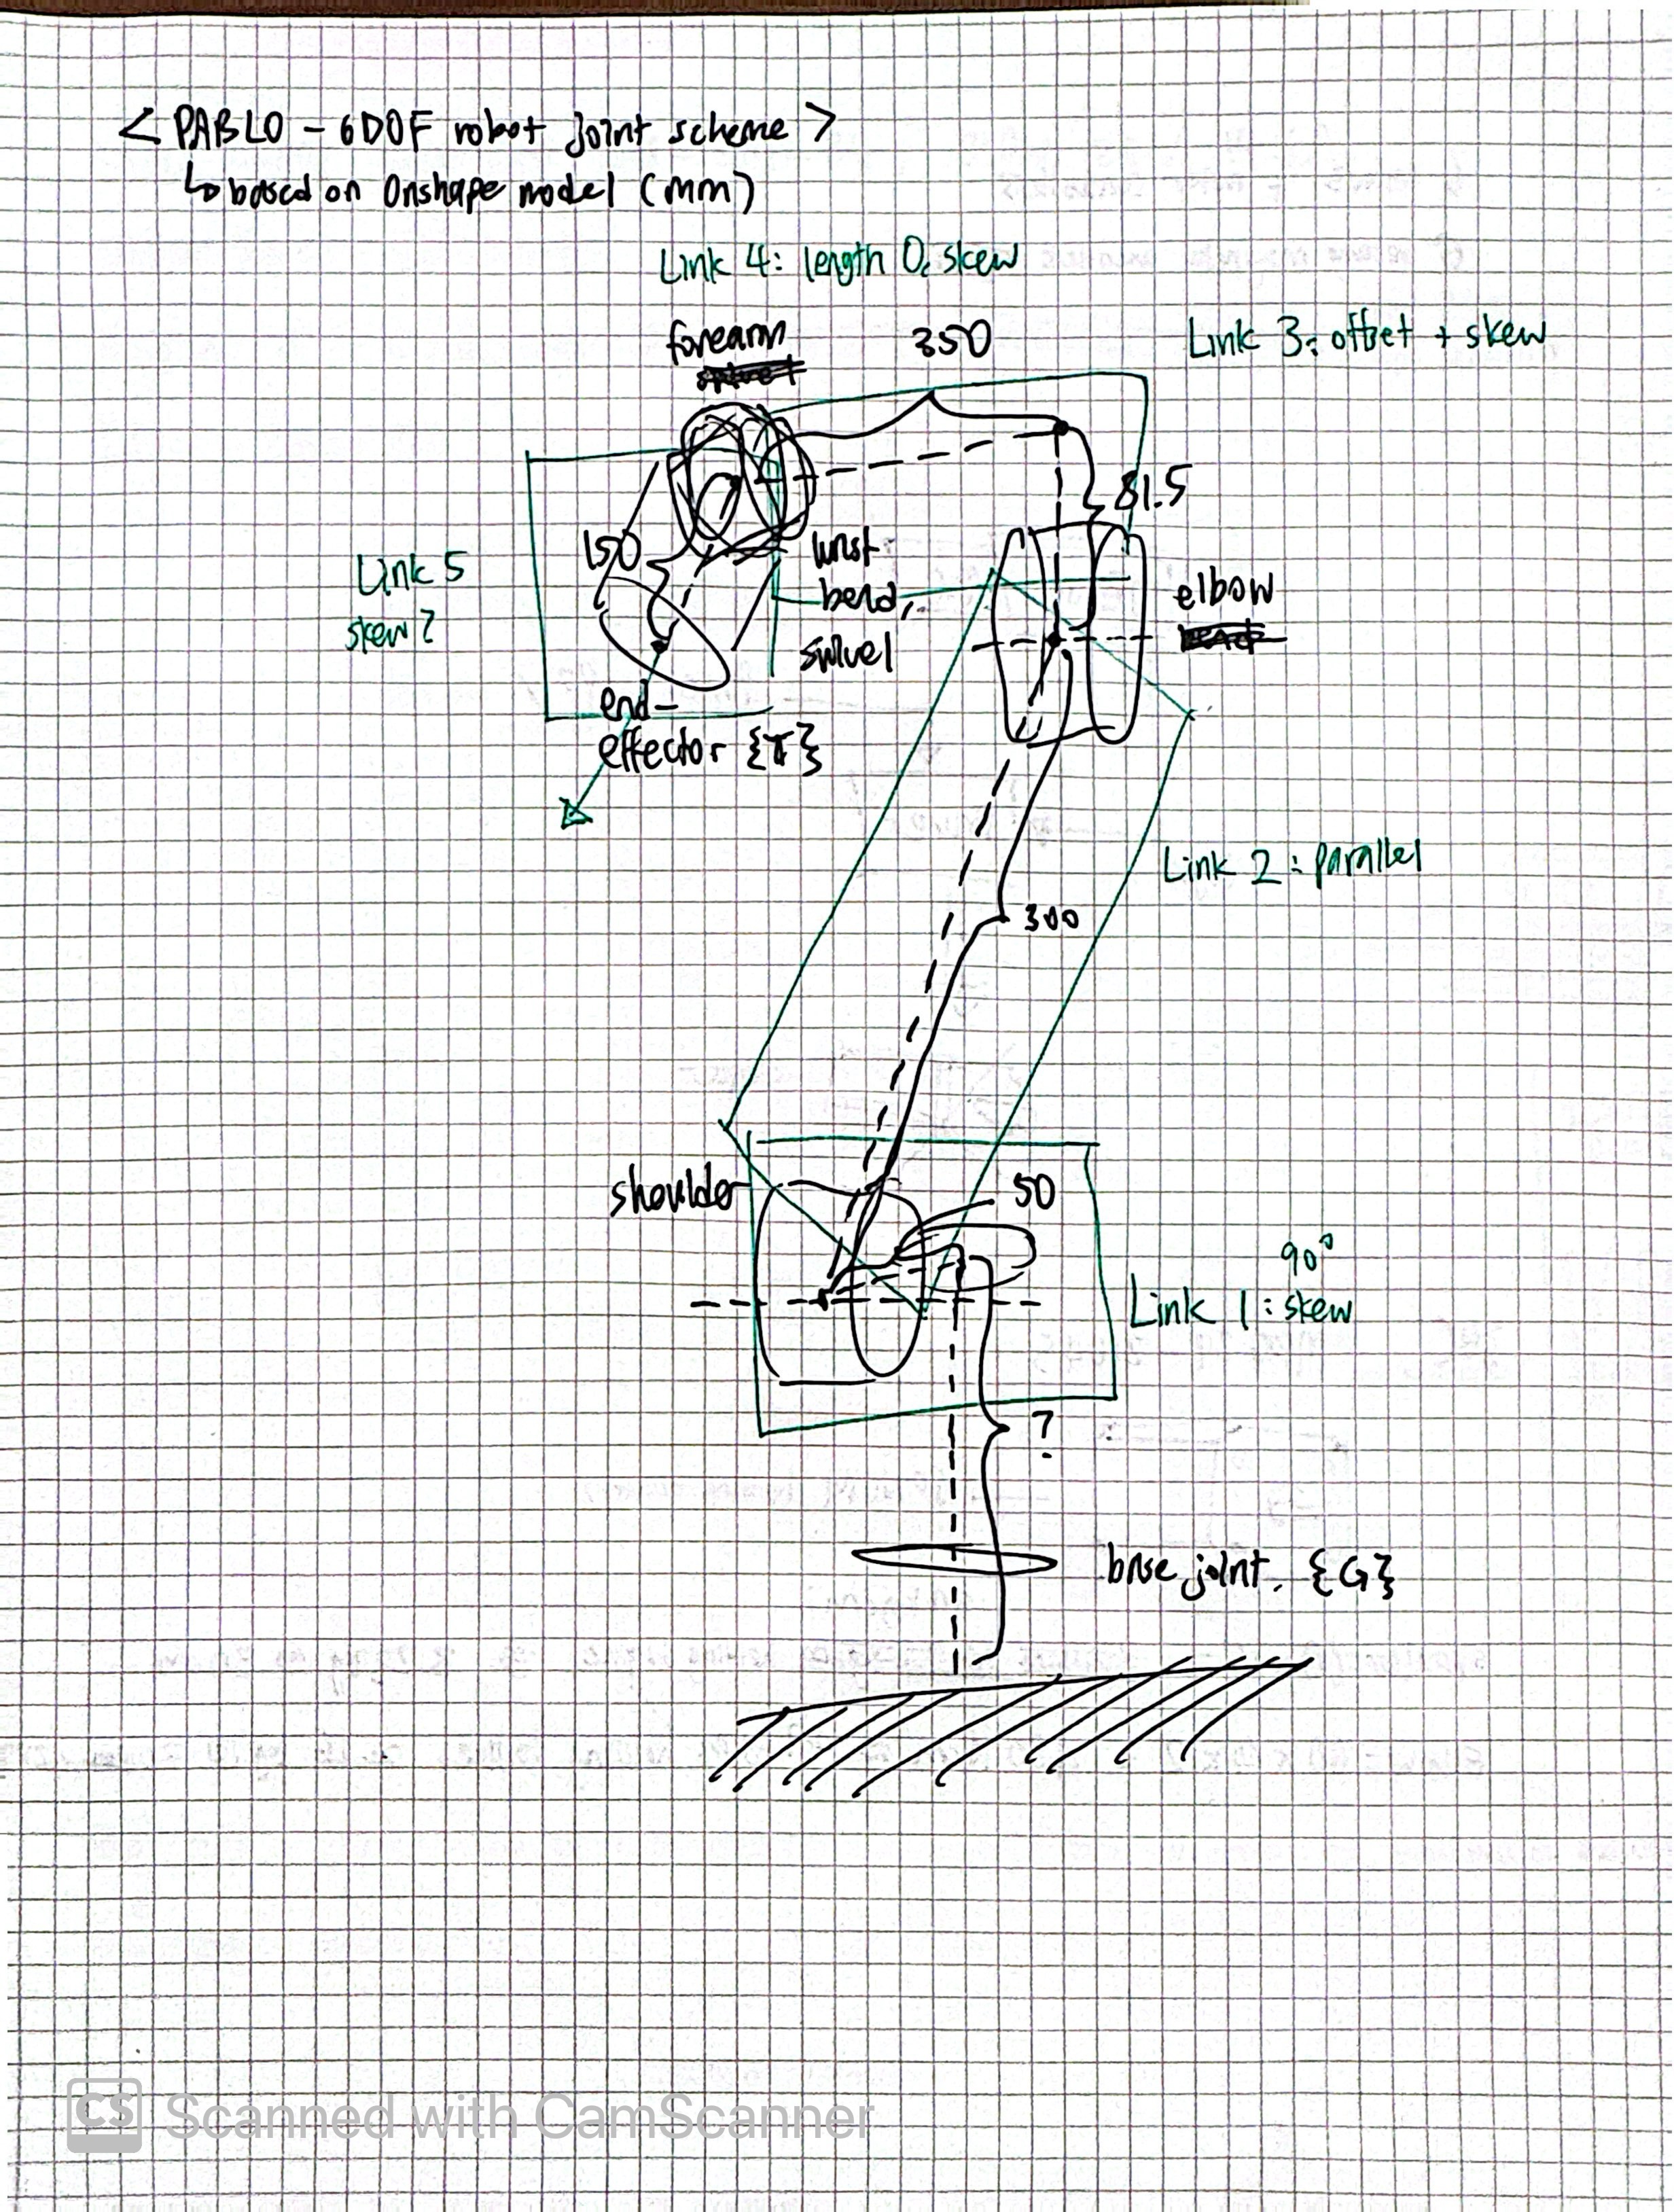 < PABLO - 6DOF robot joint scheme >
↳ based on Onshape model (mm)
Link 4: length 0, skew
forearm
350
Link 3: offset + skew
81.5
150
wrist
bend,
swivel
Link 5
skew?
elbow
end-
effector {T}
Link 2: parallel
300
shoulder
50
90°
Link 1: skew
?
base joint. {G}
CS Scanned with CamScanner